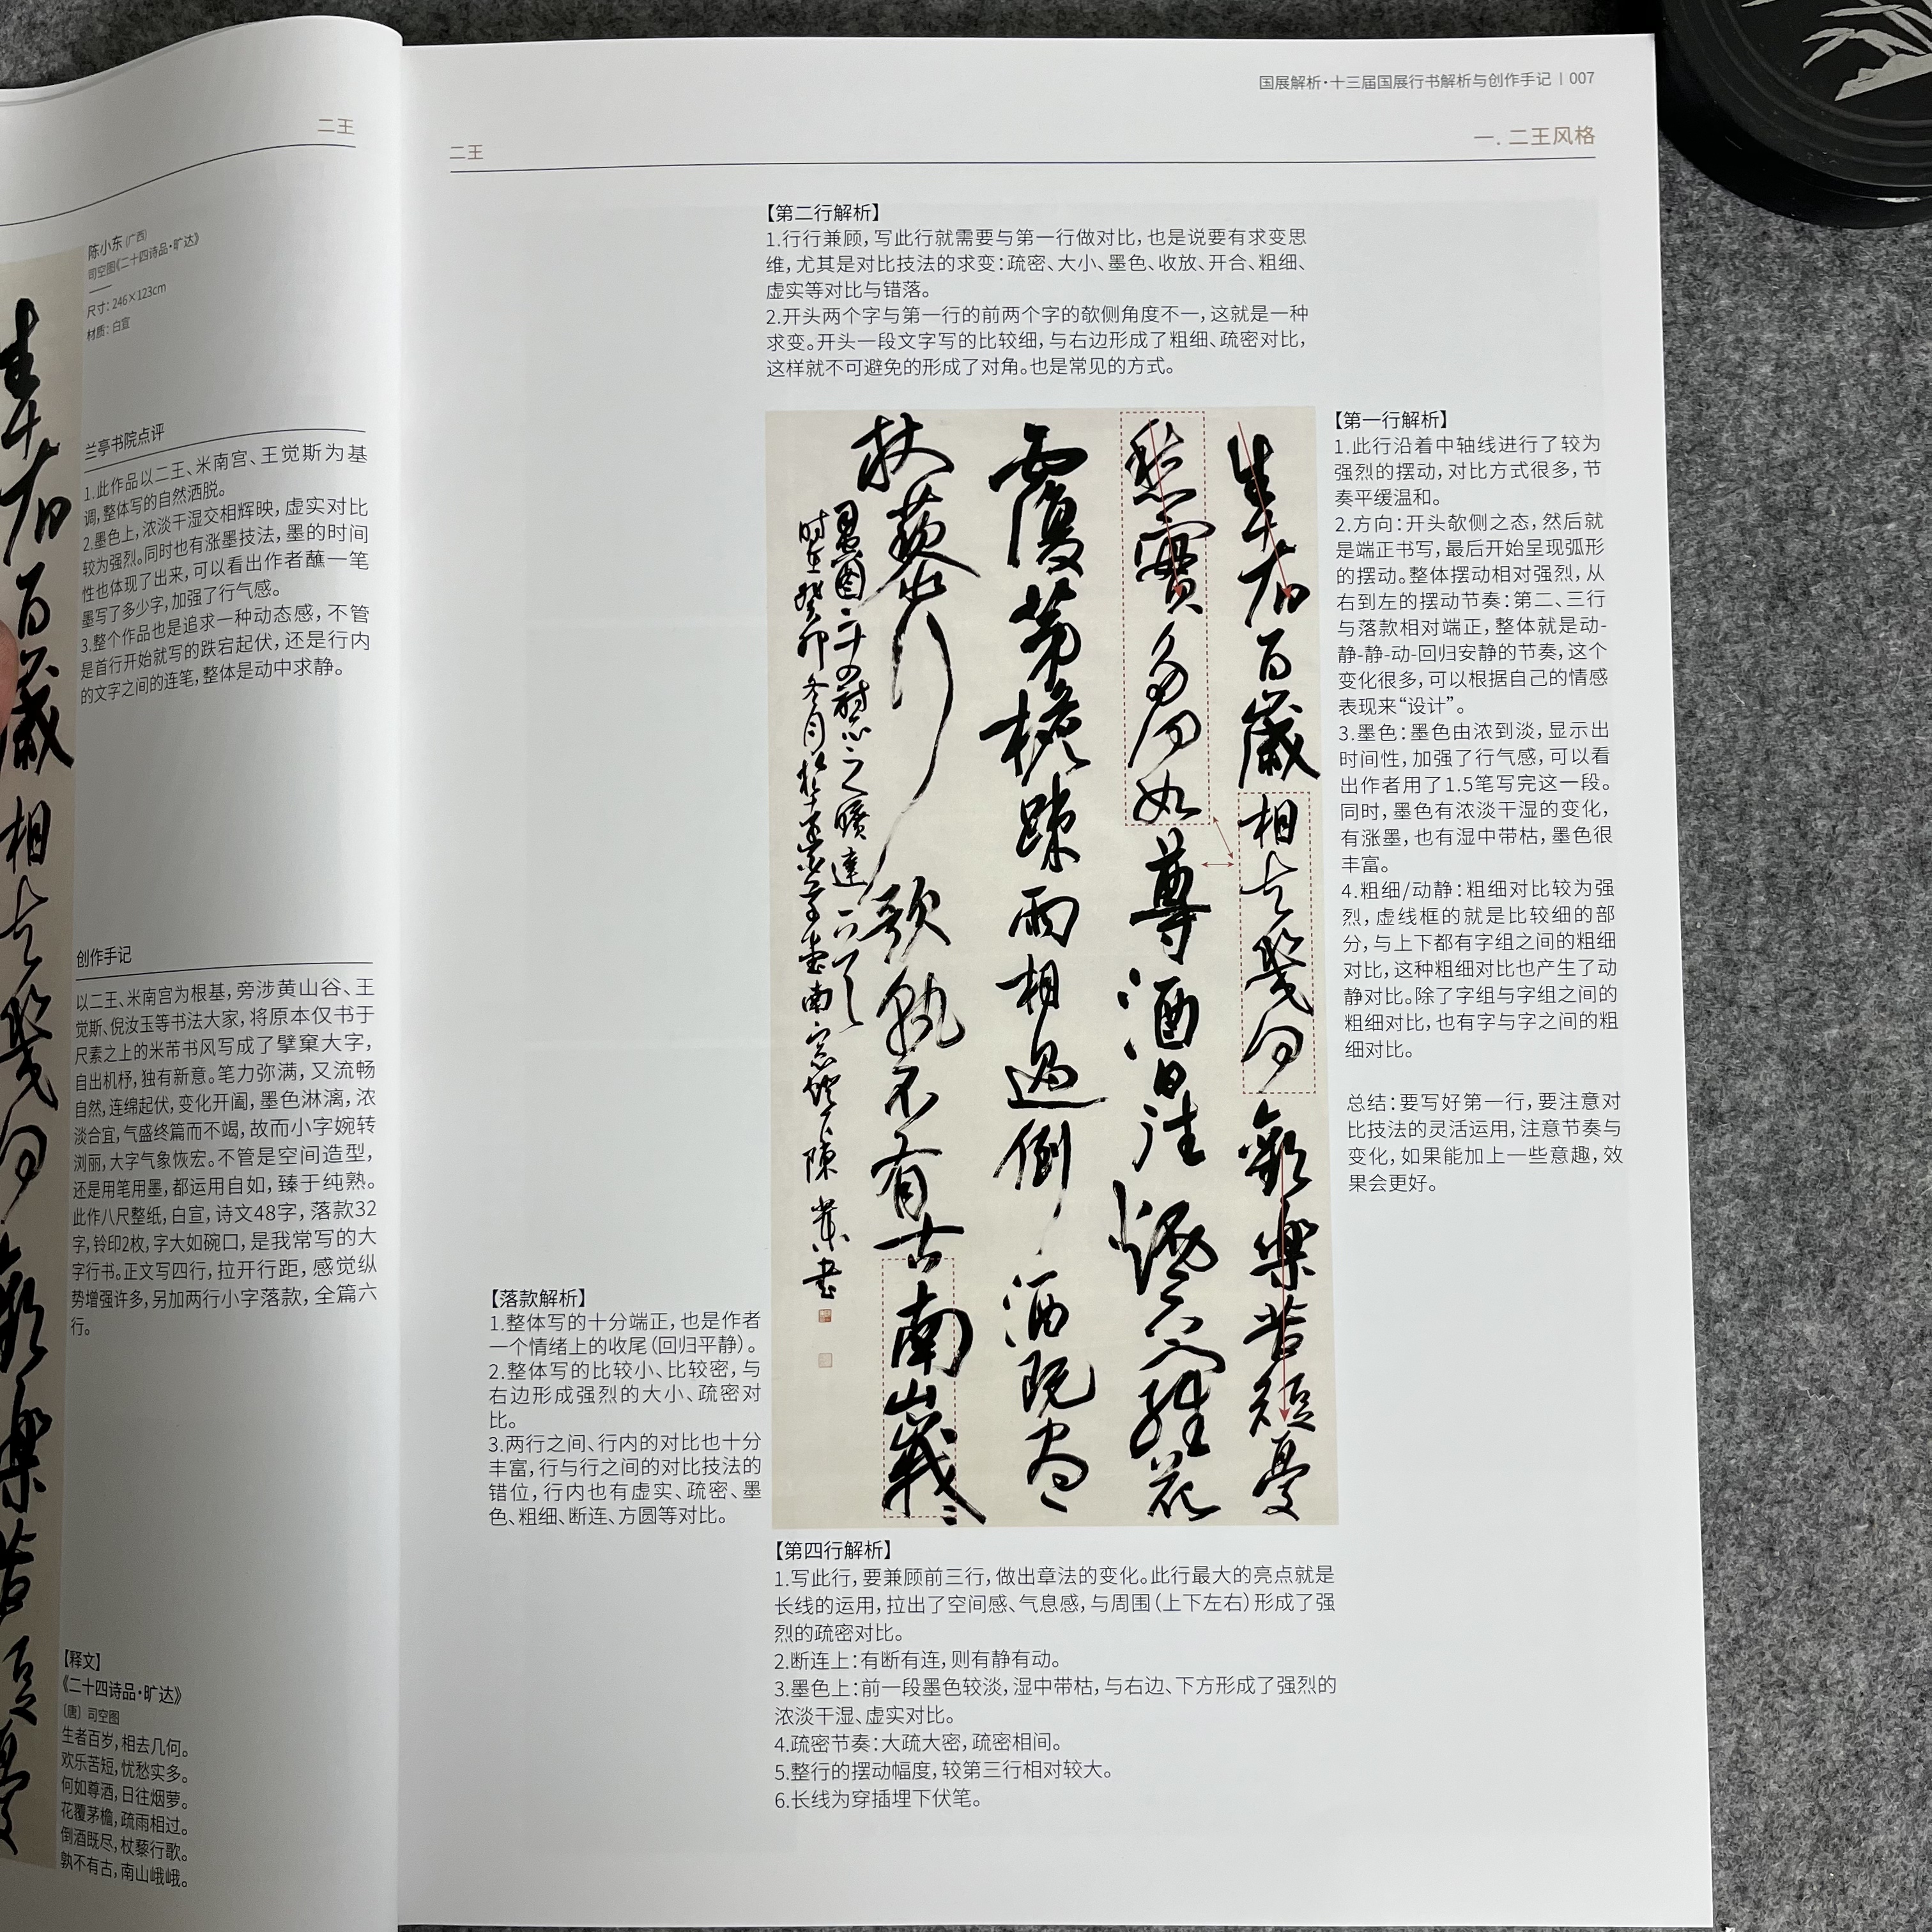 二王
陈小东(广西)
司空图《二十四诗品·旷达》
尺寸：246×123cm
材质：白宣
兰亭书院点评
1.此作品以二王、米南宫、王觉斯为基
调，整体写的自然洒脱。
2.墨色上，浓淡干湿交相辉映，虚实对比
较为强烈。同时也有涨墨技法，墨的时间
性也体现了出来，可以看出作者蘸一笔
墨写了多少字，加强了行气感。
3.整个作品也是追求一种动态感，不管
是首行开始就写的跌宕起伏，还是行内
的文字之间的连笔，整体是动中求静。
创作手记
以二王、米南宫为根基，旁涉黄山谷、王
觉斯、倪汝玉等书法大家，将原本仅书于
尺素之上的米芾书风写成了擘窠大字，
自出机杼，独有新意。笔力弥满，又流畅
自然，连绵起伏，变化开阖，墨色淋漓，浓
淡合宜，气盛终篇而不竭，故而小字婉转
浏丽，大字气象恢宏。不管是空间造型，
还是用笔用墨，都运用自如，臻于纯熟。
此作八尺整纸，白宣，诗文48字，落款32
字，铃印2枚，字大如碗口，是我常写的大
字行书。正文写四行，拉开行距，感觉纵
势增强许多，另加两行小字落款，全篇六
行。
【释文】
《二十四诗品·旷达》
〔唐〕司空图
生者百岁，相去几何。
欢乐苦短，忧愁实多。
何如尊酒，日往烟萝。
花覆茅檐，疏雨相过。
倒酒既尽，杖藜行歌。
孰不有古，南山峨峨。
生者百歲相去幾何
歡樂苦短憂
国展解析·十三届国展行书解析与创作手记 | 007
二王
一. 二王风格
【第二行解析】
1.行行兼顾，写此行就需要与第一行做对比，也是说要有求变思
维，尤其是对比技法的求变：疏密、大小、墨色、收放、开合、粗细、
虚实等对比与错落。
2.开头两个字与第一行的前两个字的欹侧角度不一，这就是一种
求变。开头一段文字写的比较细，与右边形成了粗细、疏密对比，
这样就不可避免的形成了对角。也是常见的方式。
【第一行解析】
1.此行沿着中轴线进行了较为
强烈的摆动，对比方式很多，节
奏平缓温和。
2.方向：开头欹侧之态，然后就
是端正书写，最后开始呈现弧形
的摆动。整体摆动相对强烈，从
右到左的摆动节奏：第二、三行
与落款相对端正，整体就是动-
静-静-动-回归安静的节奏，这个
变化很多，可以根据自己的情感
表现来“设计”。
3.墨色：墨色由浓到淡，显示出
时间性，加强了行气感，可以看
出作者用了1.5笔写完这一段。
同时，墨色有浓淡干湿的变化，
有涨墨，也有湿中带枯，墨色很
丰富。
4.粗细/动静：粗细对比较为强
烈，虚线框的就是比较细的部
分，与上下都有字组之间的粗细
对比，这种粗细对比也产生了动
静对比。除了字组与字组之间的
粗细对比，也有字与字之间的粗
细对比。
总结：要写好第一行，要注意对
比技法的灵活运用，注意节奏与
变化，如果能加上一些意趣，效
果会更好。
生者百歲相去幾何歡樂苦短憂
愁實多何如尊酒日往煙蘿花
覆茅檐疎雨相過倒酒既盡
杖藜行歌孰不有古南山峩〻
司空圖二十四詩品之曠達一首
时在癸卯冬月於南窗燈下陳書
【落款解析】
1.整体写的十分端正，也是作者
一个情绪上的收尾（回归平静）。
2.整体写的比较小、比较密，与
右边形成强烈的大小、疏密对
比。
3.两行之间、行内的对比也十分
丰富，行与行之间的对比技法的
错位，行内也有虚实、疏密、墨
色、粗细、断连、方圆等对比。
【第四行解析】
1.写此行，要兼顾前三行，做出章法的变化。此行最大的亮点就是
长线的运用，拉出了空间感、气息感，与周围（上下左右）形成了强
烈的疏密对比。
2.断连上：有断有连，则有静有动。
3.墨色上：前一段墨色较淡，湿中带枯，与右边、下方形成了强烈的
浓淡干湿、虚实对比。
4.疏密节奏：大疏大密，疏密相间。
5.整行的摆动幅度，较第三行相对较大。
6.长线为穿插埋下伏笔。